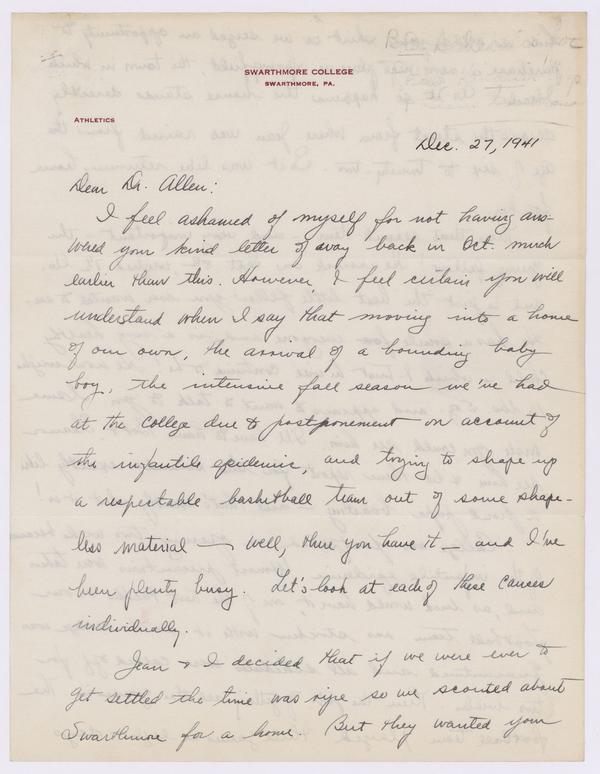 SWARTHMORE COLLEGE
SWARTHMORE, PA.
ATHLETICS
Dec. 27, 1941
Dear Dr. Allen:
I feel ashamed of myself for not having ans-
wered your kind letter of away back in Oct. much
earlier than this. However, I feel certain you will
understand when I say that moving into a home
of our own, the arrival of a bounding baby
boy, the intensive fall season we've had
at the college due to postponement on account of
the infantile epidemic, and trying to shape up
a respectable basketball team out of some shape-
less material — well, there you have it — and I've
been plenty busy. Let's look at each of these causes
individually.
Jean & I decided that if we were ever to
get settled the time was ripe so we scouted about
Swarthmore for a home. But they wanted your